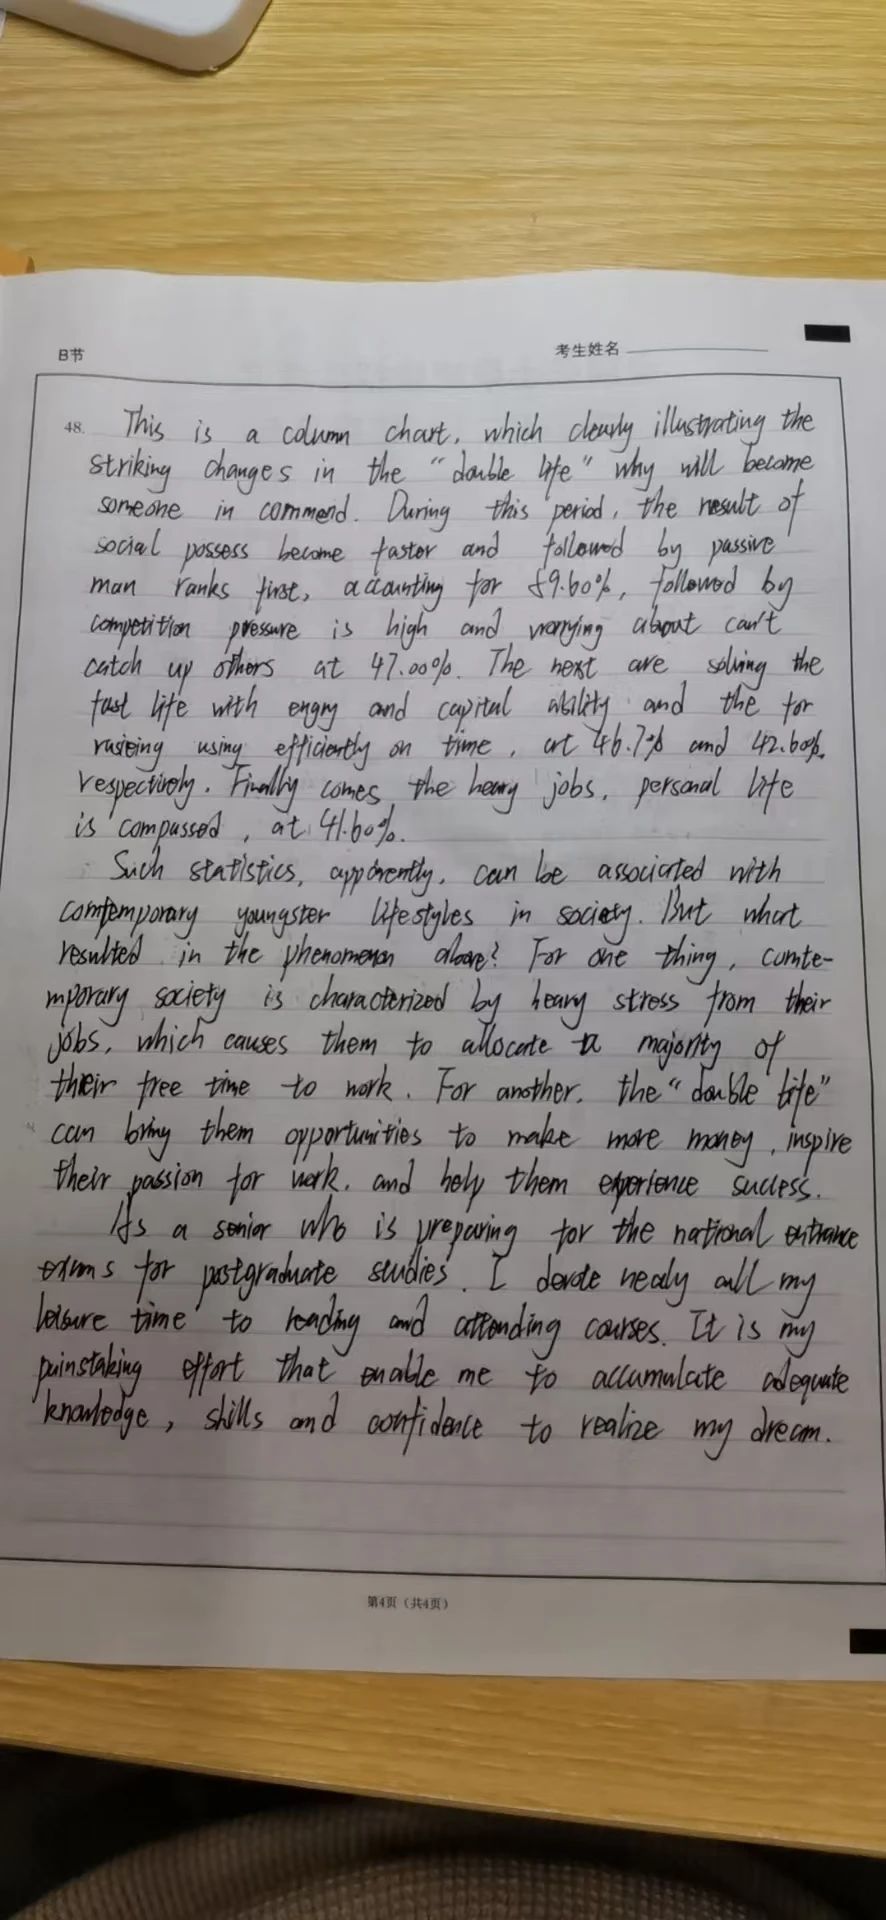 B节
考生姓名
48. This is a column chart, which clearly illustrating the
striking changes in the "double life" why will become
someone in commend. During this period, the result of
social possess become faster and followed by passive
man ranks first, accounting for 59.60%, followed by
competition pressure is high and worrying about can't
catch up others at 47.00%. The next are solving the
fast life with engry and capital ability and the for
using efficiently on time, at 46.7% and 42.60%,
respectively. Finally comes the heavy jobs, personal life
is compassed, at 41.60%.
Such statistics, apparently, can be associated with
comtemporary youngster lifestyles in society. But what
resulted in the phenomenon above? For one thing, comte-
mporary society is characterized by heavy stress from their
jobs, which causes them to allocate a majority of
their free time to work. For another, the "double life"
can bring them opportunities to make more money, inspire
their passion for work, and help them experience success.
As a senior who is preparing for the national entrance
exams for postgraduate studies, I devote nealy all my
leisure time to reading and attending courses. It is my
painstaking effort that enable me to accumulate adequate
knowledge, skills and confidence to realize my dream.
第4页（共4页）